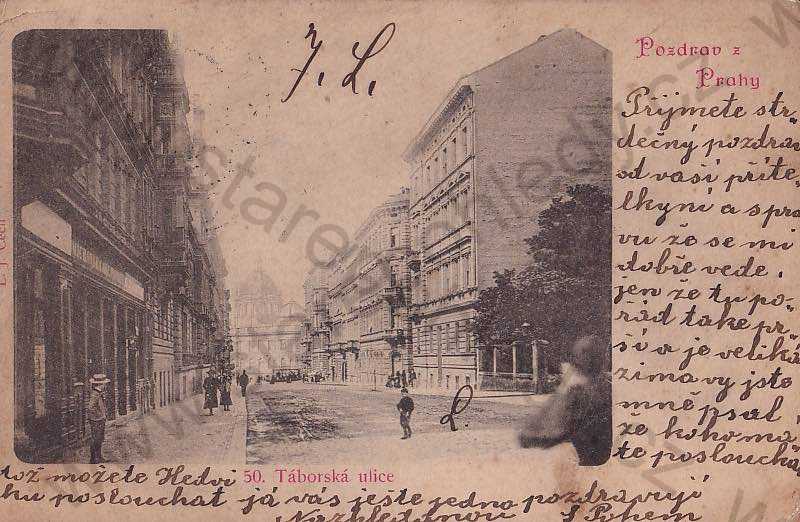 J. L.
Pozdrav z
Prahy
Přijmete srd-
dečný pozdrav
od vaší přite-
lkyni a sprá
vu že se mi
dobře vede.
jen že tu po-
řád take pr-
ší a je veliká
zima vy jste
mně psal
že koho má
te poslouchat
L.
50. Táborská ulice
tož možete Hedvi
ku poslouchat já vás ještě jedno pozdravuji
Nazhledanou S Bohem
www.starepohledy.cz